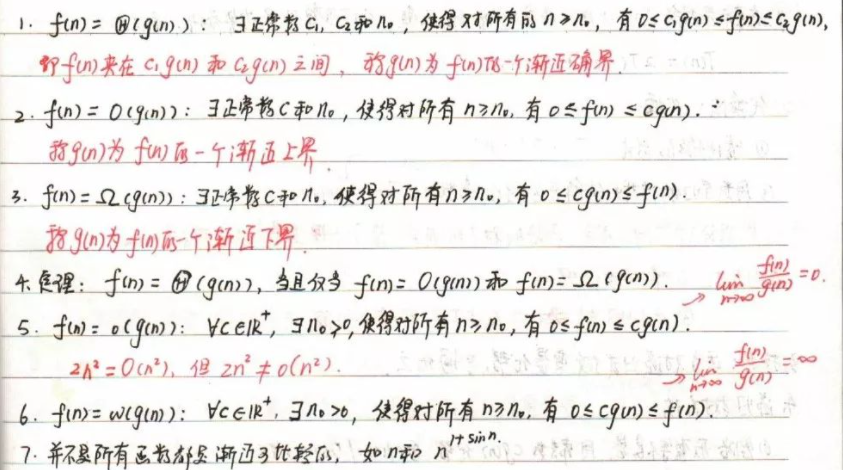 1. f(n) = Θ(g(n)): ∃正常数 C₁, C₂和 n₀, 使得对所有的 n≥n₀, 有 0≤C₁g(n)≤f(n)≤C₂g(n),
即f(n)夹在 C₁g(n) 和 C₂g(n) 之间, 称g(n)为 f(n)的一个渐近确界.
2. f(n) = O(g(n)): ∃正常数 C和 n₀, 使得对所有 n≥n₀, 有 0≤f(n)≤cg(n).
称g(n)为 f(n)的一个渐近上界.
3. f(n) = Ω(g(n)): ∃正常数 C和 n₀, 使得对所有n≥n₀, 有 0≤cg(n)≤f(n).
称g(n)为f(n)的一个渐近下界.
4. 定理: f(n) = Θ(g(n)), 当且仅当 f(n) = O(g(n)) 和 f(n) = Ω(g(n)).
→ lim n→∞ f(n)/g(n) = 0.
5. f(n) = o(g(n)): ∀C∈ℝ⁺, ∃n₀>0, 使得对所有 n≥n₀, 有 0≤f(n)≤cg(n).
2n² = O(n²), 但 2n² ≠ o(n²).
→ lim n→∞ f(n)/g(n) = ∞
6. f(n) = ω(g(n)): ∀C∈ℝ⁺, ∃n₀>0, 使得对所有 n≥n₀, 有 0≤cg(n)≤f(n).
7. 并不是所有函数都是渐近可比较的, 如 n和 n^(1+sin n).